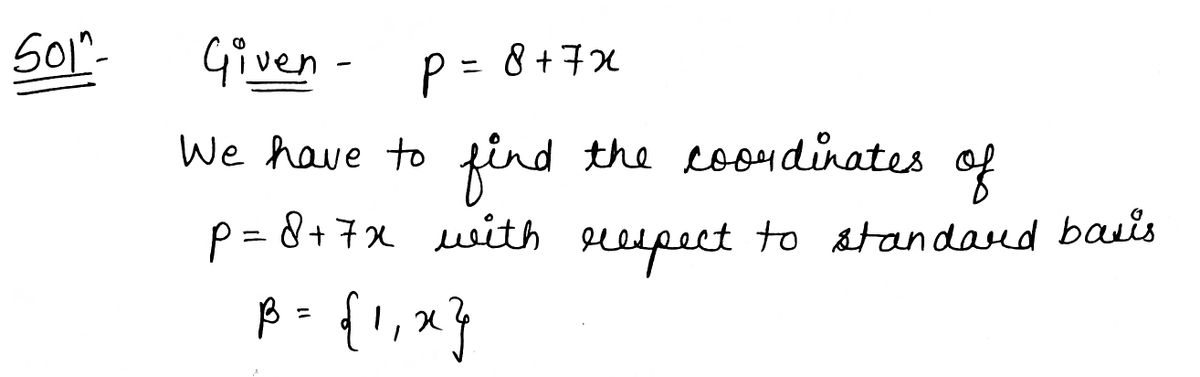 Solⁿ- Given - p = 8+7x
We have to find the coordinates of
p = 8+7x with respect to standard basis
β = {1, x}